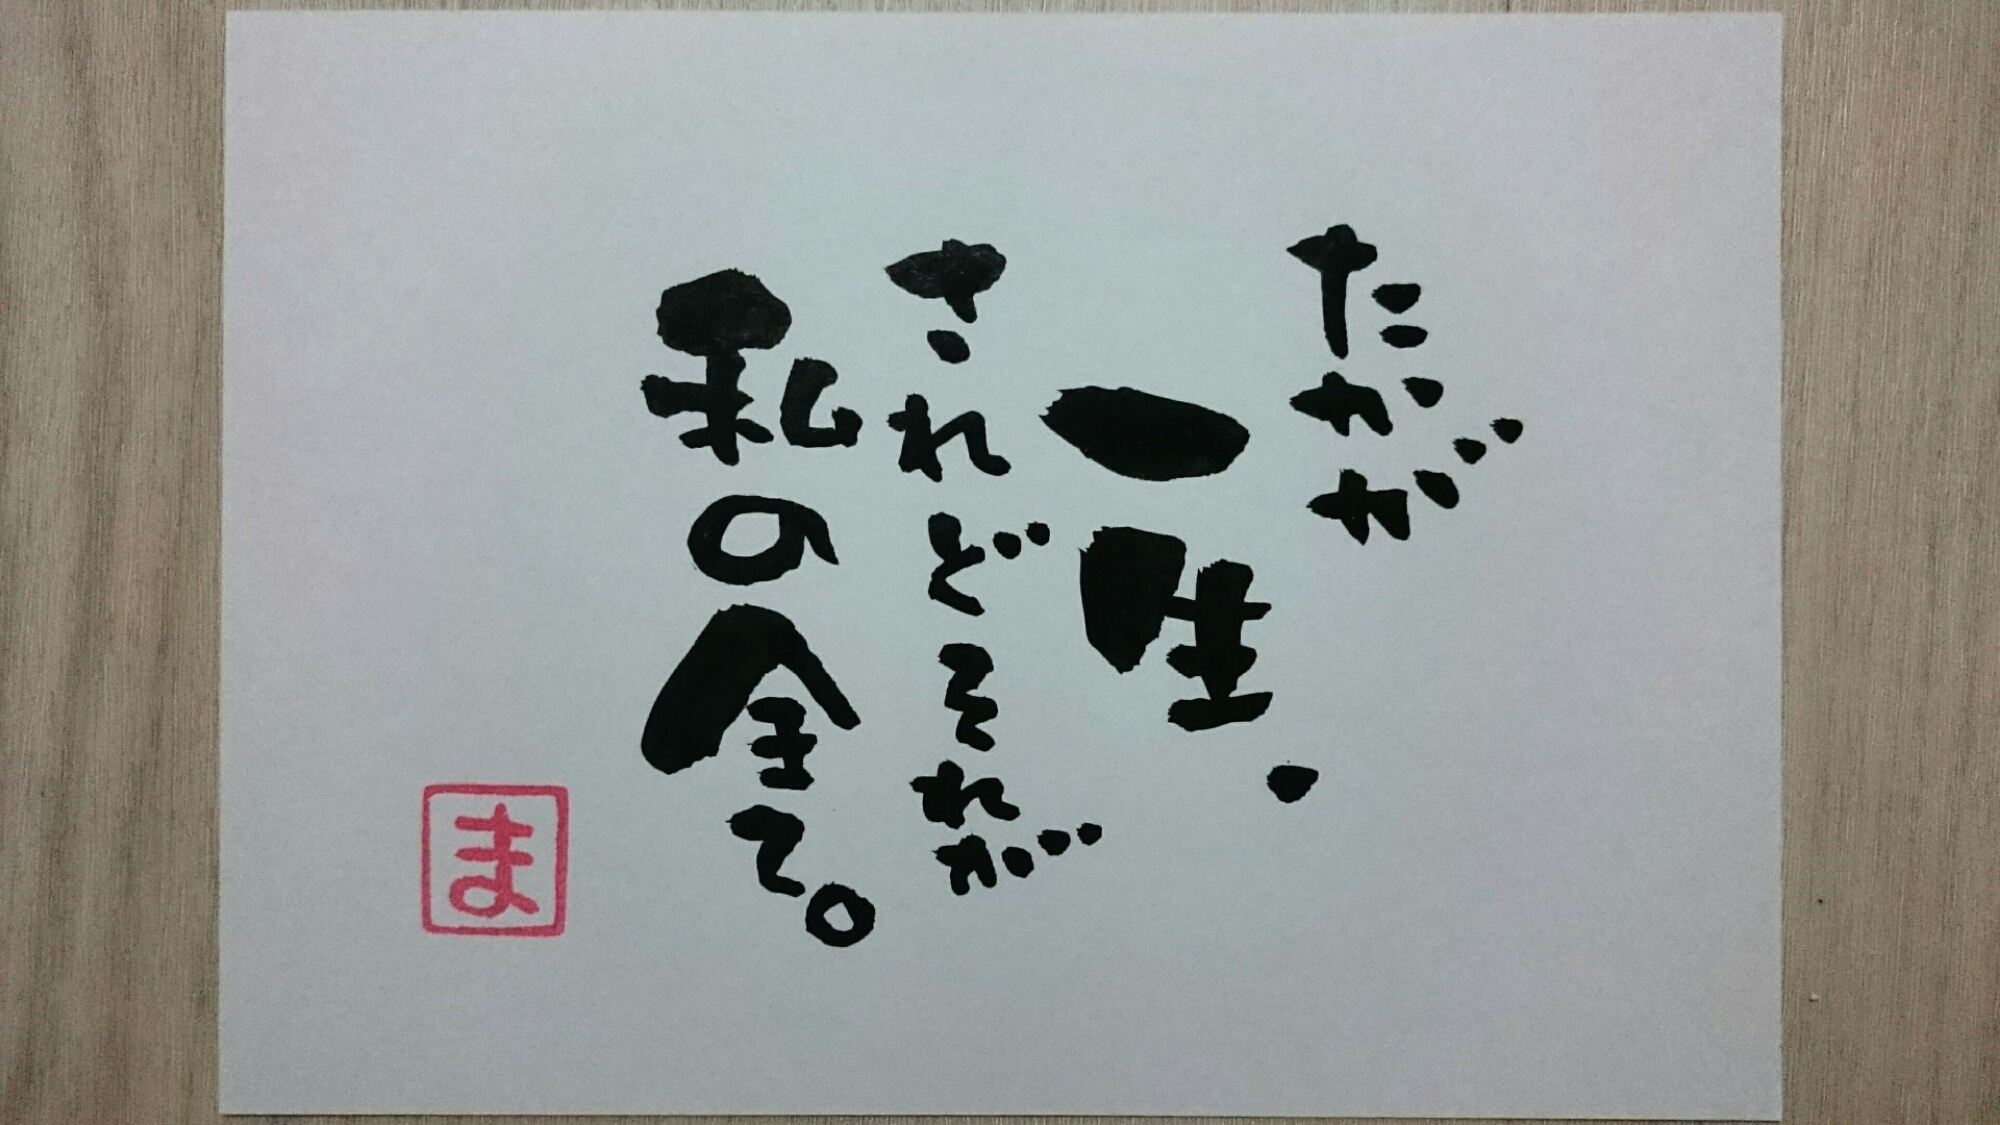 たかが
一生、
されどそれが
私の全て。
ま